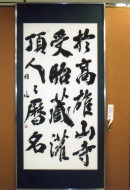 於高雄山寺
受昭藏灌
頂人々暦名